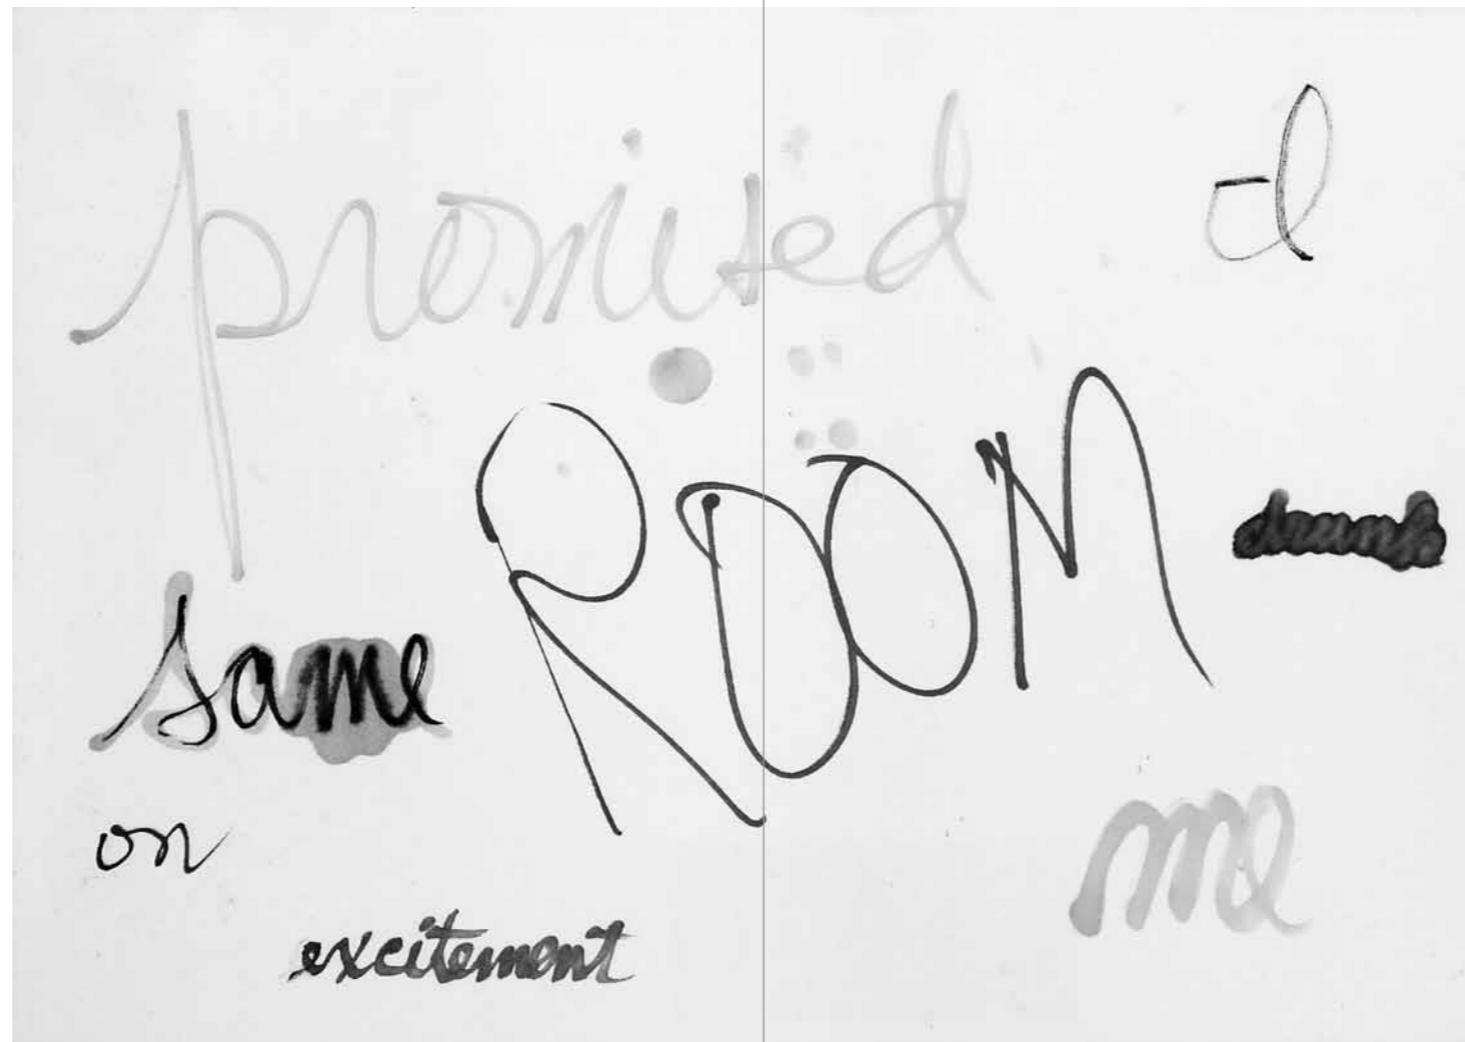 promised I
ROOM
drunk
same
me
on
excitement